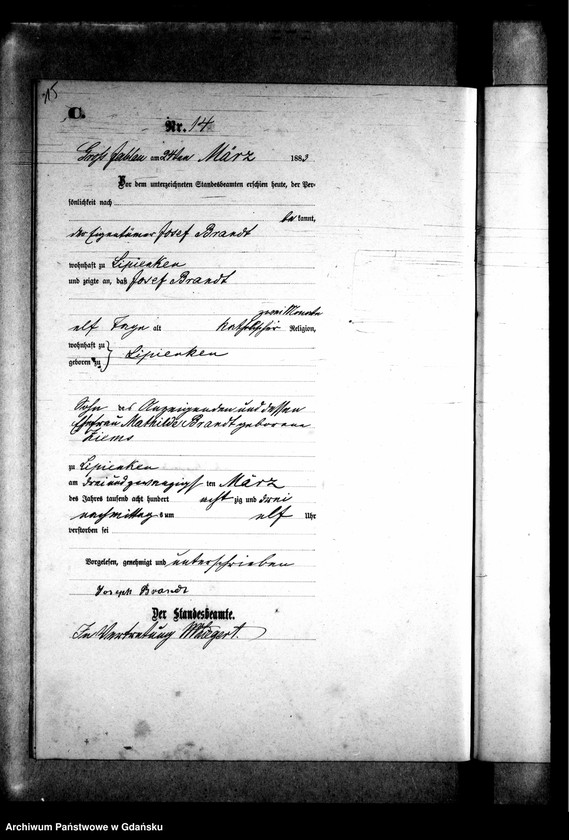 15
C.
Nr. 14
Groß Jablau am 24ten März 1883
Vor dem unterzeichneten Standesbeamten erschien heute, der Per-
sönlichkeit nach
be kannt,
der Eigentümer Josef Brandt
wohnhaft zu Lipienken
und zeigte an, daß Josef Brandt
zwei Monate
elf Tage alt katholischer Religion,
wohnhaft zu
geboren zu } Lipienken
Sohn des Anzeigenden und dessen
Ehefrau Mathilde Brandt geborene
Ziems
zu Lipienken
am drei und zwanzigsten März
des Jahres tausend acht hundert acht zig und drei
nachmittags um elf Uhr
verstorben sei
Vorgelesen, genehmigt und unterschrieben
Joseph Brandt
Der Standesbeamte.
In Vertretung
Archiwum Państwowe w Gdańsku